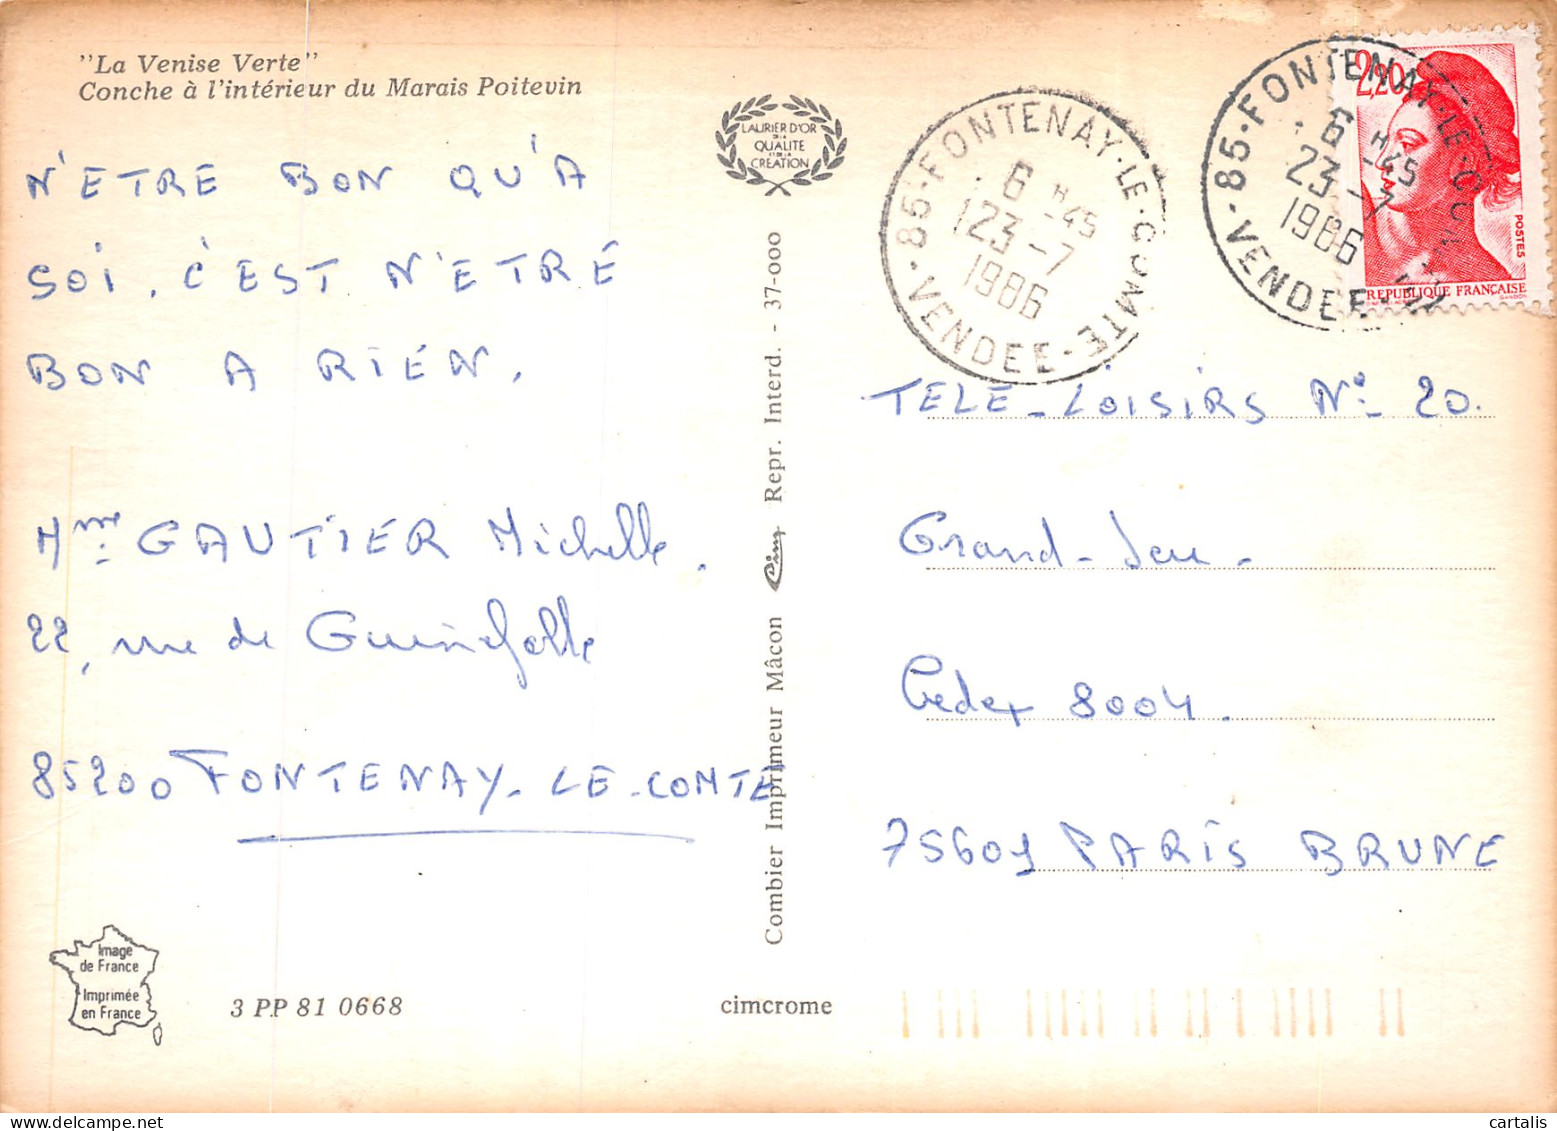 "La Venise Verte"
Conche à l'intérieur du Marais Poitevin
N'ETRE BON QU'A
SOI, C'EST N'ETRE
BON A RIEN.
Mme GAUTIER Michelle.
22, rue de
85200 FONTENAY-LE-COMTE
Image
de France
Imprimée
en France
3 PP 81 0668
cimcrome
LAURIER D'OR
DE LA
QUALITE
ET DE LA
CREATION
Combier Imprimeur Mâcon Cim Repr. Interd. - 37-000
85·FONTENAY·LE·COMTE·VENDEE
6 H 45
23-7
1986
85·FONTENAY·LE·COMTE·VENDEE
6 H 45
23-7
1986
2,20
POSTES
REPUBLIQUE FRANÇAISE
GANDON
TELE-LOISIRS No 20.
Grand-Jeu.
Cedex 8004.
75601 PARIS BRUNE
cartalis